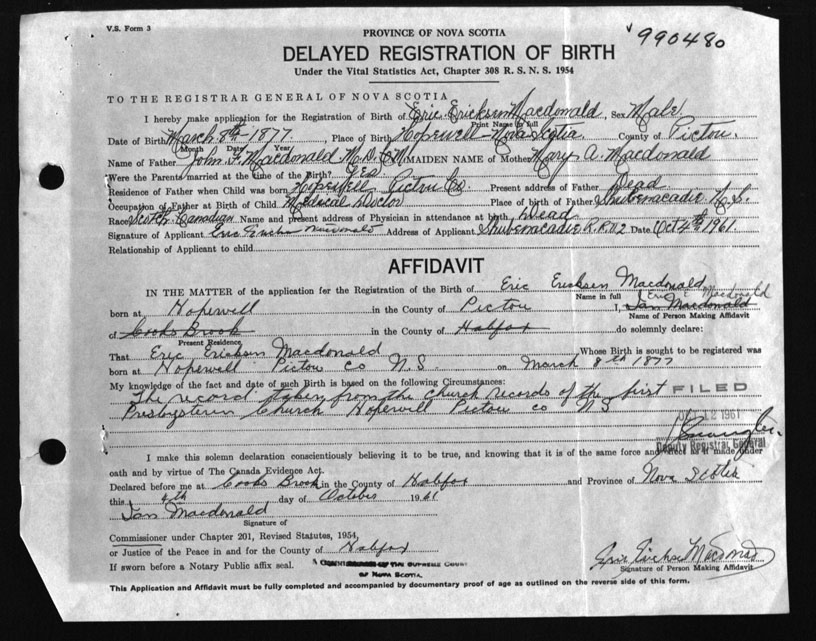 V.S. Form 3
PROVINCE OF NOVA SCOTIA
990480
DELAYED REGISTRATION OF BIRTH
Under the Vital Statistics Act, Chapter 308 R. S. N. S. 1954
TO THE REGISTRAR GENERAL OF NOVA SCOTIA
I hereby make application for the Registration of Birth of Eric Ericksen Macdonald, Sex Male
Print Name in full
Date of Birth March 8th 1877 Place of Birth Hopewell - Nova Scotia County of Pictou.
Month Date Year
Name of Father John F. Macdonald M.D. C.M MAIDEN NAME of Mother Mary A. Macdonald
Were the Parents married at the time of the Birth? Yes
Residence of Father when Child was born Hopewell Pictou Co. Present address of Father Dead
Occupation of Father at Birth of Child Medical Doctor Place of birth of Father Shubenacadie N.S.
Race Scotch-Canadian Name and present address of Physician in attendance at birth Dead
Signature of Applicant Eric Ericksen Macdonald Address of Applicant Shubenacadie R.R. 2 Date Oct 4th 1961.
Relationship of Applicant to child
AFFIDAVIT
IN THE MATTER of the application for the Registration of the Birth of Eric Ericksen Macdonald
Name in full Eric Macdonald
born at Hopewell in the County of Pictou I, Ian Macdonald
Name of Person Making Affidavit
of Cooks Brook in the County of Halifax do solemnly declare:
Present Residence
That Eric Ericksen Macdonald Whose Birth is sought to be registered was
born at Hopewell Pictou Co N.S. on March 8th 1877
My knowledge of the fact and date of such Birth is based on the following Circumstances:
The record taken from the church records of the first
FILED
Presbyterian Church Hopewell Pictou co NS
12 1961
Deputy Registrar General
I make this solemn declaration conscientiously believing it to be true, and knowing that it is of the same force and effect as if made under
oath and by virtue of The Canada Evidence Act.
Declared before me at Cooks Brook in the County of Halifax and Province of Nova Scotia
this 4th day of October 1961
Ian Macdonald
Signature of
Commissioner under Chapter 201, Revised Statutes, 1954,
or Justice of the Peace in and for the County of Halifax
If sworn before a Notary Public affix seal.
A COMMISSIONER OF THE SUPREME COURT
OF NOVA SCOTIA.
Eric Ericksen Macdonald
Signature of Person Making Affidavit
This Application and Affidavit must be fully completed and accompanied by documentary proof of age as outlined on the reverse side of this form.